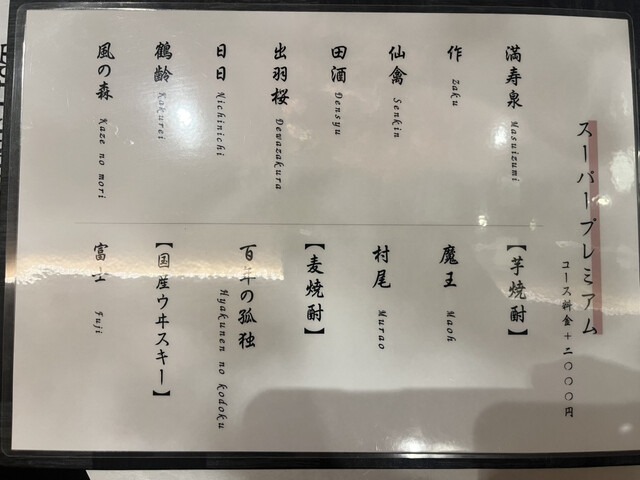 スーパープレミアム
コース料金＋二〇〇〇円
満寿泉 Masuizumi
作 Zaku
仙禽 Senkin
田酒 Densyu
出羽桜 Dewazakura
日日 Hichinichi
鶴齢 Kakurei
風の森 Kaze no mori
【芋焼酎】
魔王 Maoh
村尾 Murao
【麦焼酎】
百年の孤独 Hyakunen no kodoku
【国産ウヰスキー】
富士 Fuji